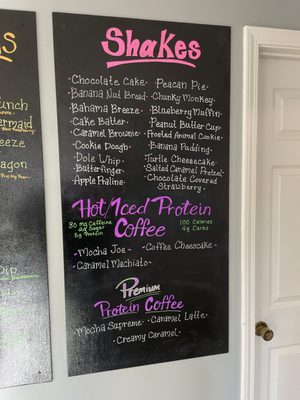 s
unch
ermaid
eeze
agon
Shakes
• Chocolate Cake • • Peacan Pie •
• Banana Nut Bread • • Chunky Monkey •
• Bahama Breeze • • Blueberry Muffin •
• Cake Batter • • Peanut Butter Cup •
• Caramel Brownie • • Frosted Animal Cookie •
• Cookie Dough • • Banana Pudding •
• Dole Whip • • Turtle Cheesecake •
• Butterfinger • • Salted Caramel Pretzel •
• Apple Praline • • Chocolate Covered Strawberry •
Hot/Iced Protein
Coffee
80 mg Caffeine 100 Calories
Sugar 4g Carbs
Protein
~ Mocha Joe ~ ~ Coffee Cheesecake ~
~ Caramel Machiato ~
Premium
Protein Coffee
~ Mocha Supreme ~ ~ Caramel Latte ~
~ Creamy Caramel ~